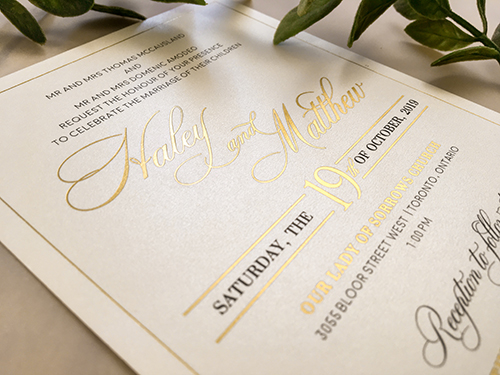 MR AND MRS THOMAS MCCAUSLAND
AND
MR AND MRS DOMENIC AMODEO
REQUEST THE HONOUR OF YOUR PRESENCE
TO CELEBRATE THE MARRIAGE OF THEIR CHILDREN
Haley and Matthew
SATURDAY, THE 19th OF OCTOBER, 2019
OUR LADY OF SORROWS CHURCH
3055 BLOOR STREET WEST | TORONTO, ONTARIO
1:00 PM
Reception to follow